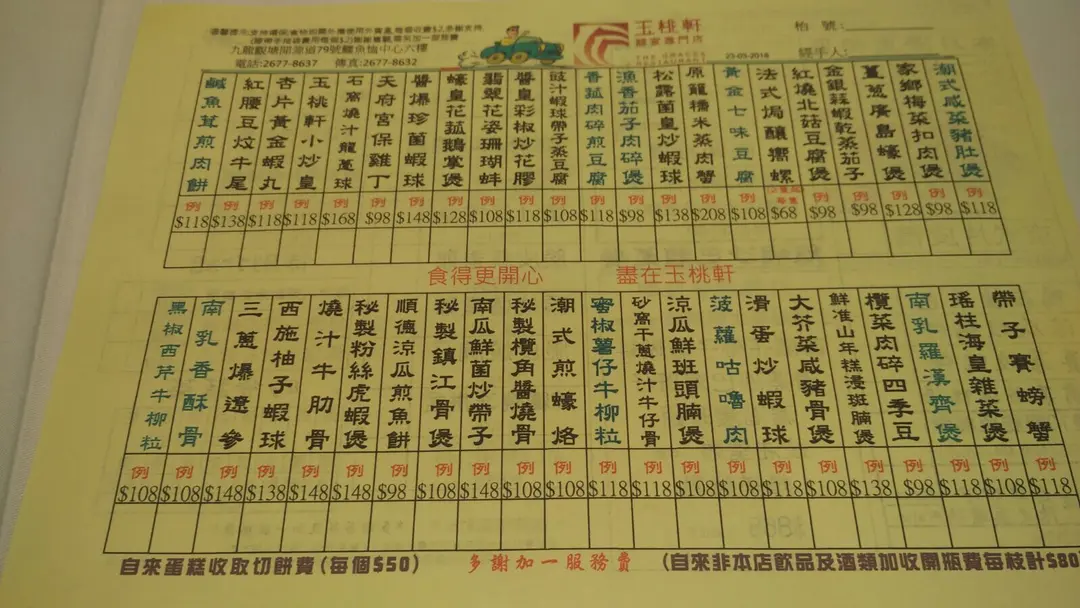 玉桃軒
九龍觀塘開源道79號鱷魚恤中心六樓
電話:2677-8637 傳真:2677-8632
23-03-2018
枱 號:
經手人:
潮式咸菜豬肚煲 例 $118
家鄉梅菜扣肉煲 例 $98
薑蔥廣島蠔煲 例 $128
金銀蒜蝦乾蒸茄子 例 $98
紅燒北菇豆腐煲 例 $98
法式焗釀嚮螺 $68
黃金七味豆腐 例 $108
原籠糯米蒸肉蟹 例 $208
松露菌皇炒蝦球 例 $138
漁香茄子肉碎煲 例 $98
香菰肉碎煎豆腐 例 $118
豉汁蝦球帶子蒸豆腐 例 $108
醬皇彩椒炒花膠 例 $118
翡翠花姿珊瑚蚌 例 $108
蠔皇花菰鵝掌煲 例 $128
醬爆珍菌蝦球 例 $148
天府宮保雞丁 例 $98
石窩燒汁龍躉球 例 $168
玉桃軒小炒皇 例 $118
杏片黃金蝦丸 例 $118
紅腰豆炆牛尾 例 $138
鹹魚茸煎肉餅 例 $118
食得更開心 盡在玉桃軒
帶子賽螃蟹 例 $118
瑤柱海皇雜菜煲 例 $108
南乳羅漢齊煲 例 $118
欖菜肉碎四季豆 例 $98
鮮淮山年糕浸斑腩煲 例 $138
大芥菜咸豬骨煲 例 $108
滑蛋炒蝦球 例 $118
菠蘿咕嚕肉 例 $108
涼瓜鮮班頭腩煲 例 $108
砂窩干蔥燒汁牛仔骨 例 $118
蜜椒薯仔牛柳粒 例 $118
潮式煎蠔烙 例 $108
秘製欖角醬燒骨 例 $108
南瓜鮮菌炒帶子 例 $148
秘製鎮江骨煲 例 $108
順德涼瓜煎魚餅 例 $98
秘製粉絲虎蝦煲 例 $148
燒汁牛肋骨 例 $148
西施柚子蝦球 例 $138
三蔥爆遼參 例 $148
南乳香酥骨 例 $108
黑椒西芹牛柳粒 例 $108
自來蛋糕收取切餅費(每個$50) 多謝加一服務費 (自來非本店飲品及酒類加收開瓶費每枝計$80